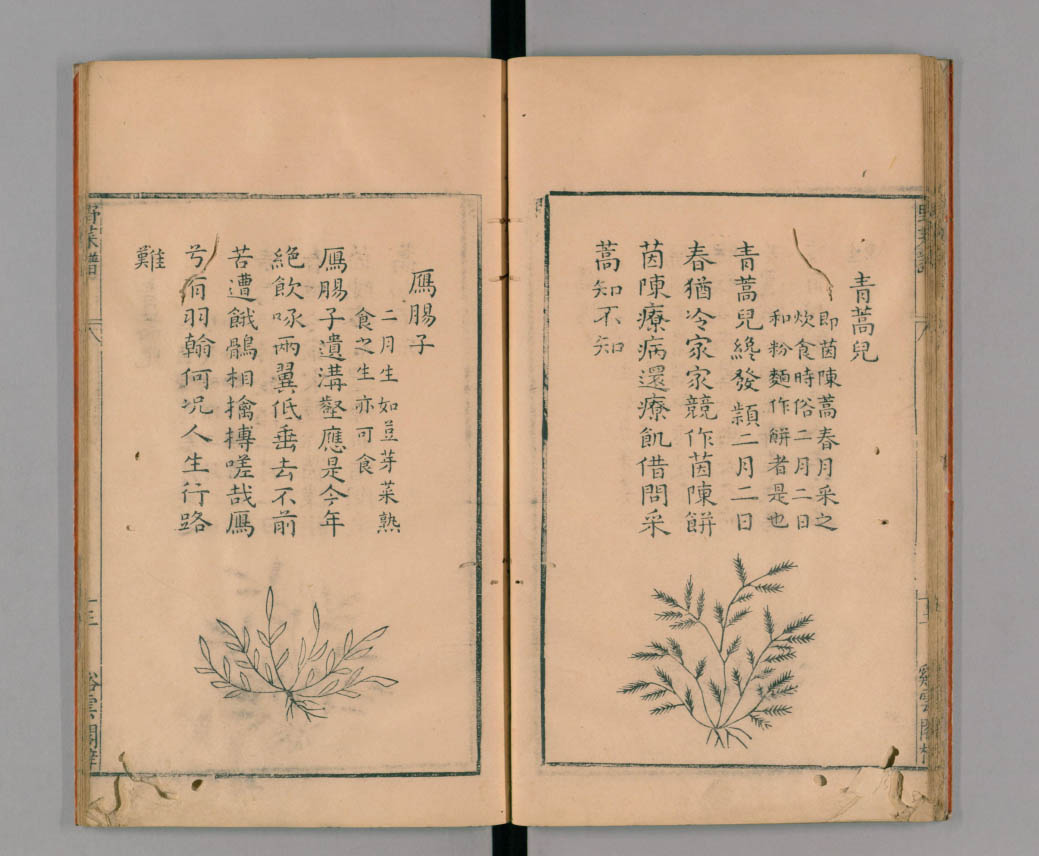 青蒿兒
即茵陳蒿春月采之
炊食時俗二月二日
和粉麵作餅者是也
青蒿兒纔發頴二月二日
春猶冷家家競作茵陳餅
茵陳療病還療飢借問采
蒿知不知
鴈腸子
二月生如荳芽菜熟
食之生亦可食
鴈腸子遺溝壑應是今年
絕飲啄兩翼低垂去不前
苦遭餓鶻相擒摶嗟哉鴈
兮有羽翰何况人生行路
難
野菜譜